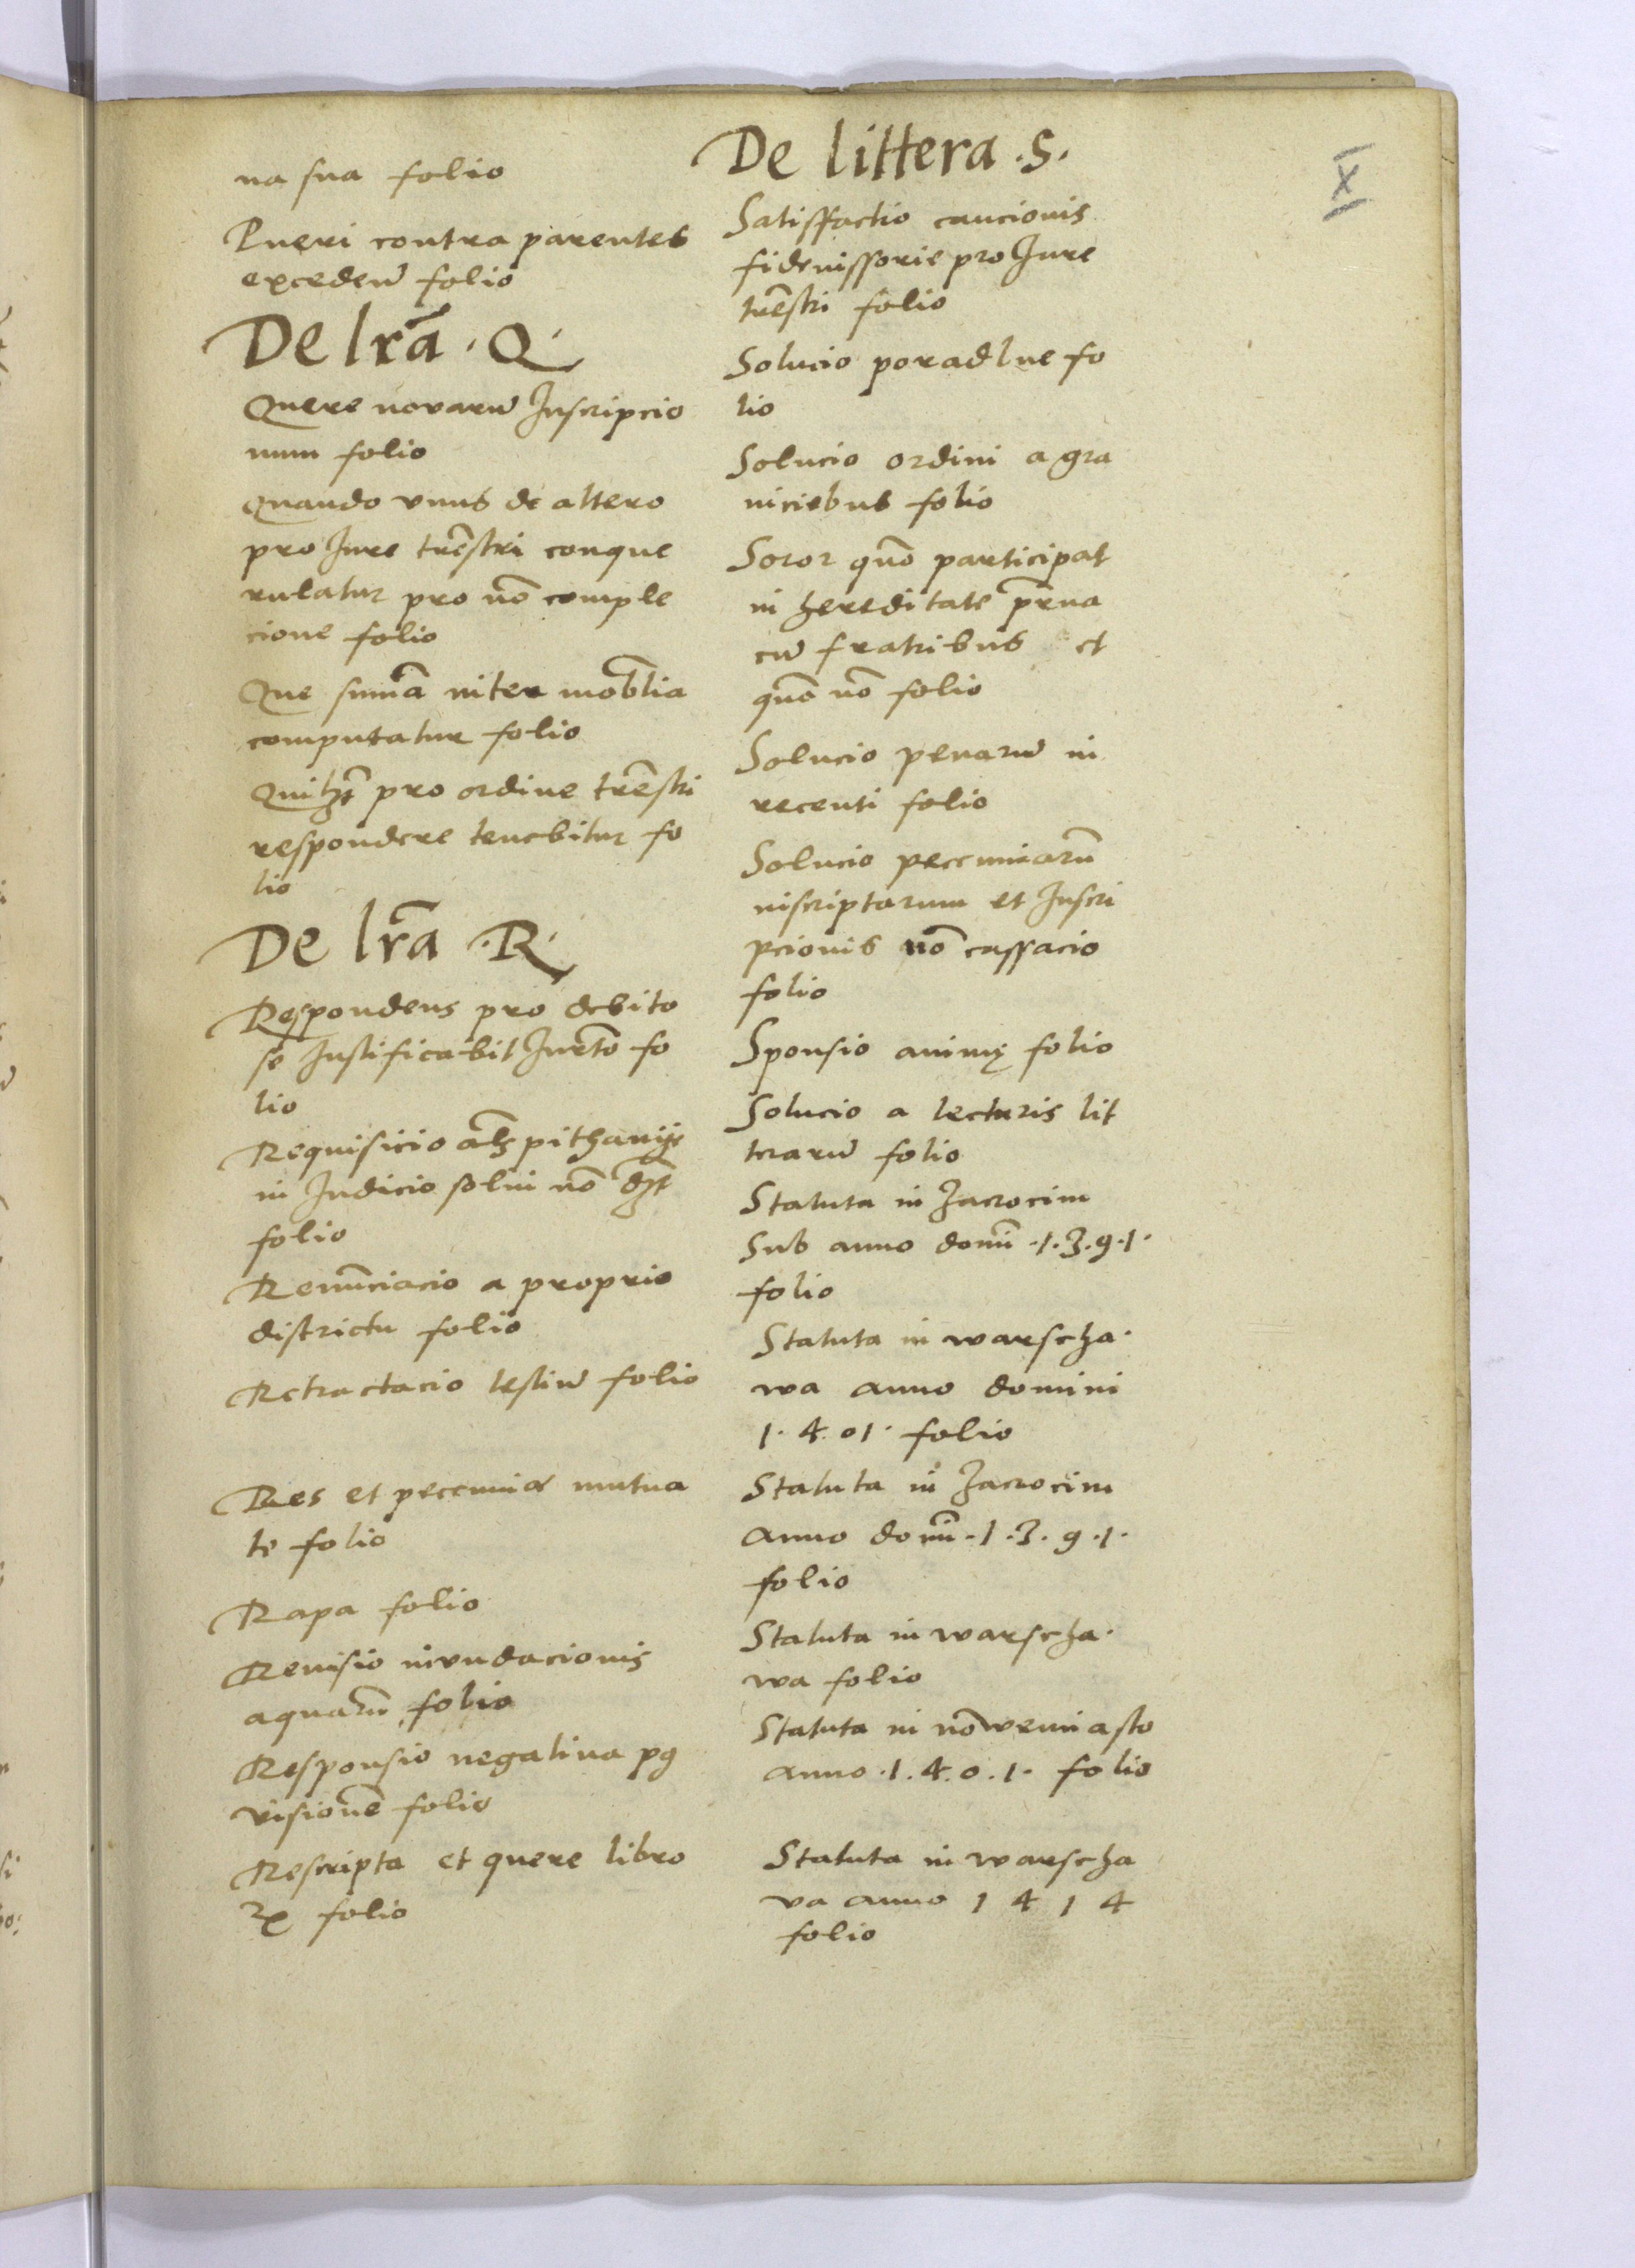 na sua folio
Pueri contra parentes
excedeñ folio
De lr̃a .Q.
Quere novarũ Inscripcio
num folio
Quando vnus de altero
pro Jure trẽstri conque
rulatur pro nõ comple
cione folio
Que sum̃a inter mob̃lia
computatur folio
Quilʒt pro ordine trẽstri
respondere tenebitur fo
lio
De lr̃a .R.
Respondens pro debito
se Justificabit Jurᵐto fo
lio
Requisicio al̃s pithanije
in Judicio solui nõ dʒt
folio
Renũciacio a proprio
districtu folio
Retractacio testiũ folio
Res et peccuniæ mutua
te folio
Rapa folio
Reuisio invndacionis
aquarũ folio
Responsio negatiua
visionẽ folio
Rescripta et quere libro
folio
De littera .S.
Satisffactio caucionis
fideiussorie pro Jure
trẽstri folio
Solucio poradlne fo
lio
Solucio ordini a gra
niciebus folio
Soror quõ participat
in hereditate pr̃na
cũ fratribus et
quõ nõ folio
Solucio penarũ in
recenti folio
Solucio peccuniarũ
inscriptarum et Inscri
pcionis nõ cassacio
folio
Sponsio animę folio
Solucio a lecturis lit
terarũ folio
Statuta in Zacrocim
Sub anno domĩ .1.3.9.1.
folio
Statuta in warscha.
wa anno domini
1.4.01. folio
Statuta in Zacrocim
anno domĩ .1.3.9.1.
folio
Statuta in warscha.
wa folio
Statuta in nõwemiasto
anno .1.4.0.1. folio
Statuta in warscha
va anno 1 4 1 4
folio
X